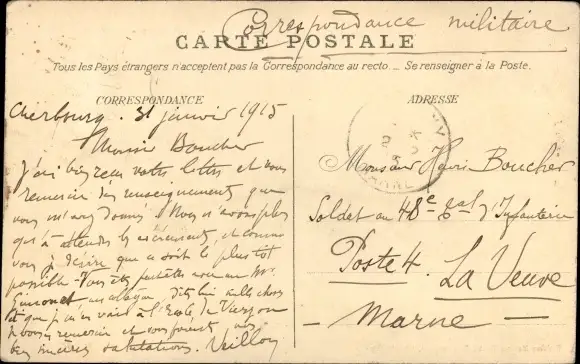 Correspondance militaire
CARTE POSTALE
Tous les Pays étrangers n'acceptent pas la Correspondance au recto. _ Se renseigner à la Poste.
CORRESPONDANCE
Cherbourg. 31 janvier 1915
Monsieur Boucher
J'ai bien recu votre lettre et vous
remercie des renseignements que
vous m'avez donnés. Nous n'avons plus
qu'à attendre les événements, et comme
vous je désire que ce soit le plus tôt
possible. Vous êtes peut-être avec un Mr
dites lui mille choses
et que j'ai été à l'Ecole de Vierzon
remercie et vous
mes sincères salutations. Veillon
ADRESSE
Monsieur Henri Boucher
Soldat au 48e Bat. d'Infanterie
Poste 4. La Veuve
- Marne -